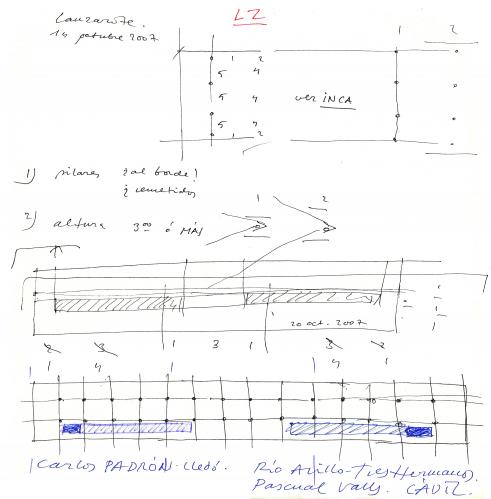 Lanzarote.
LZ
14 octubre 2007
1 2
1 2
5 4
5 4
5 4
1 2
ver INCA
1) pilares ¿al borde?
¿ remetidos
1 2
2) altura 3.00 ó MÁS
20 oct. 2007
2 3 1 3 1 3 2
1 4 4 1
Carlos PADRÓN-Lledó.
Río Arillo-Tres Hermanas.
Pascual Valls. CÁDIZ